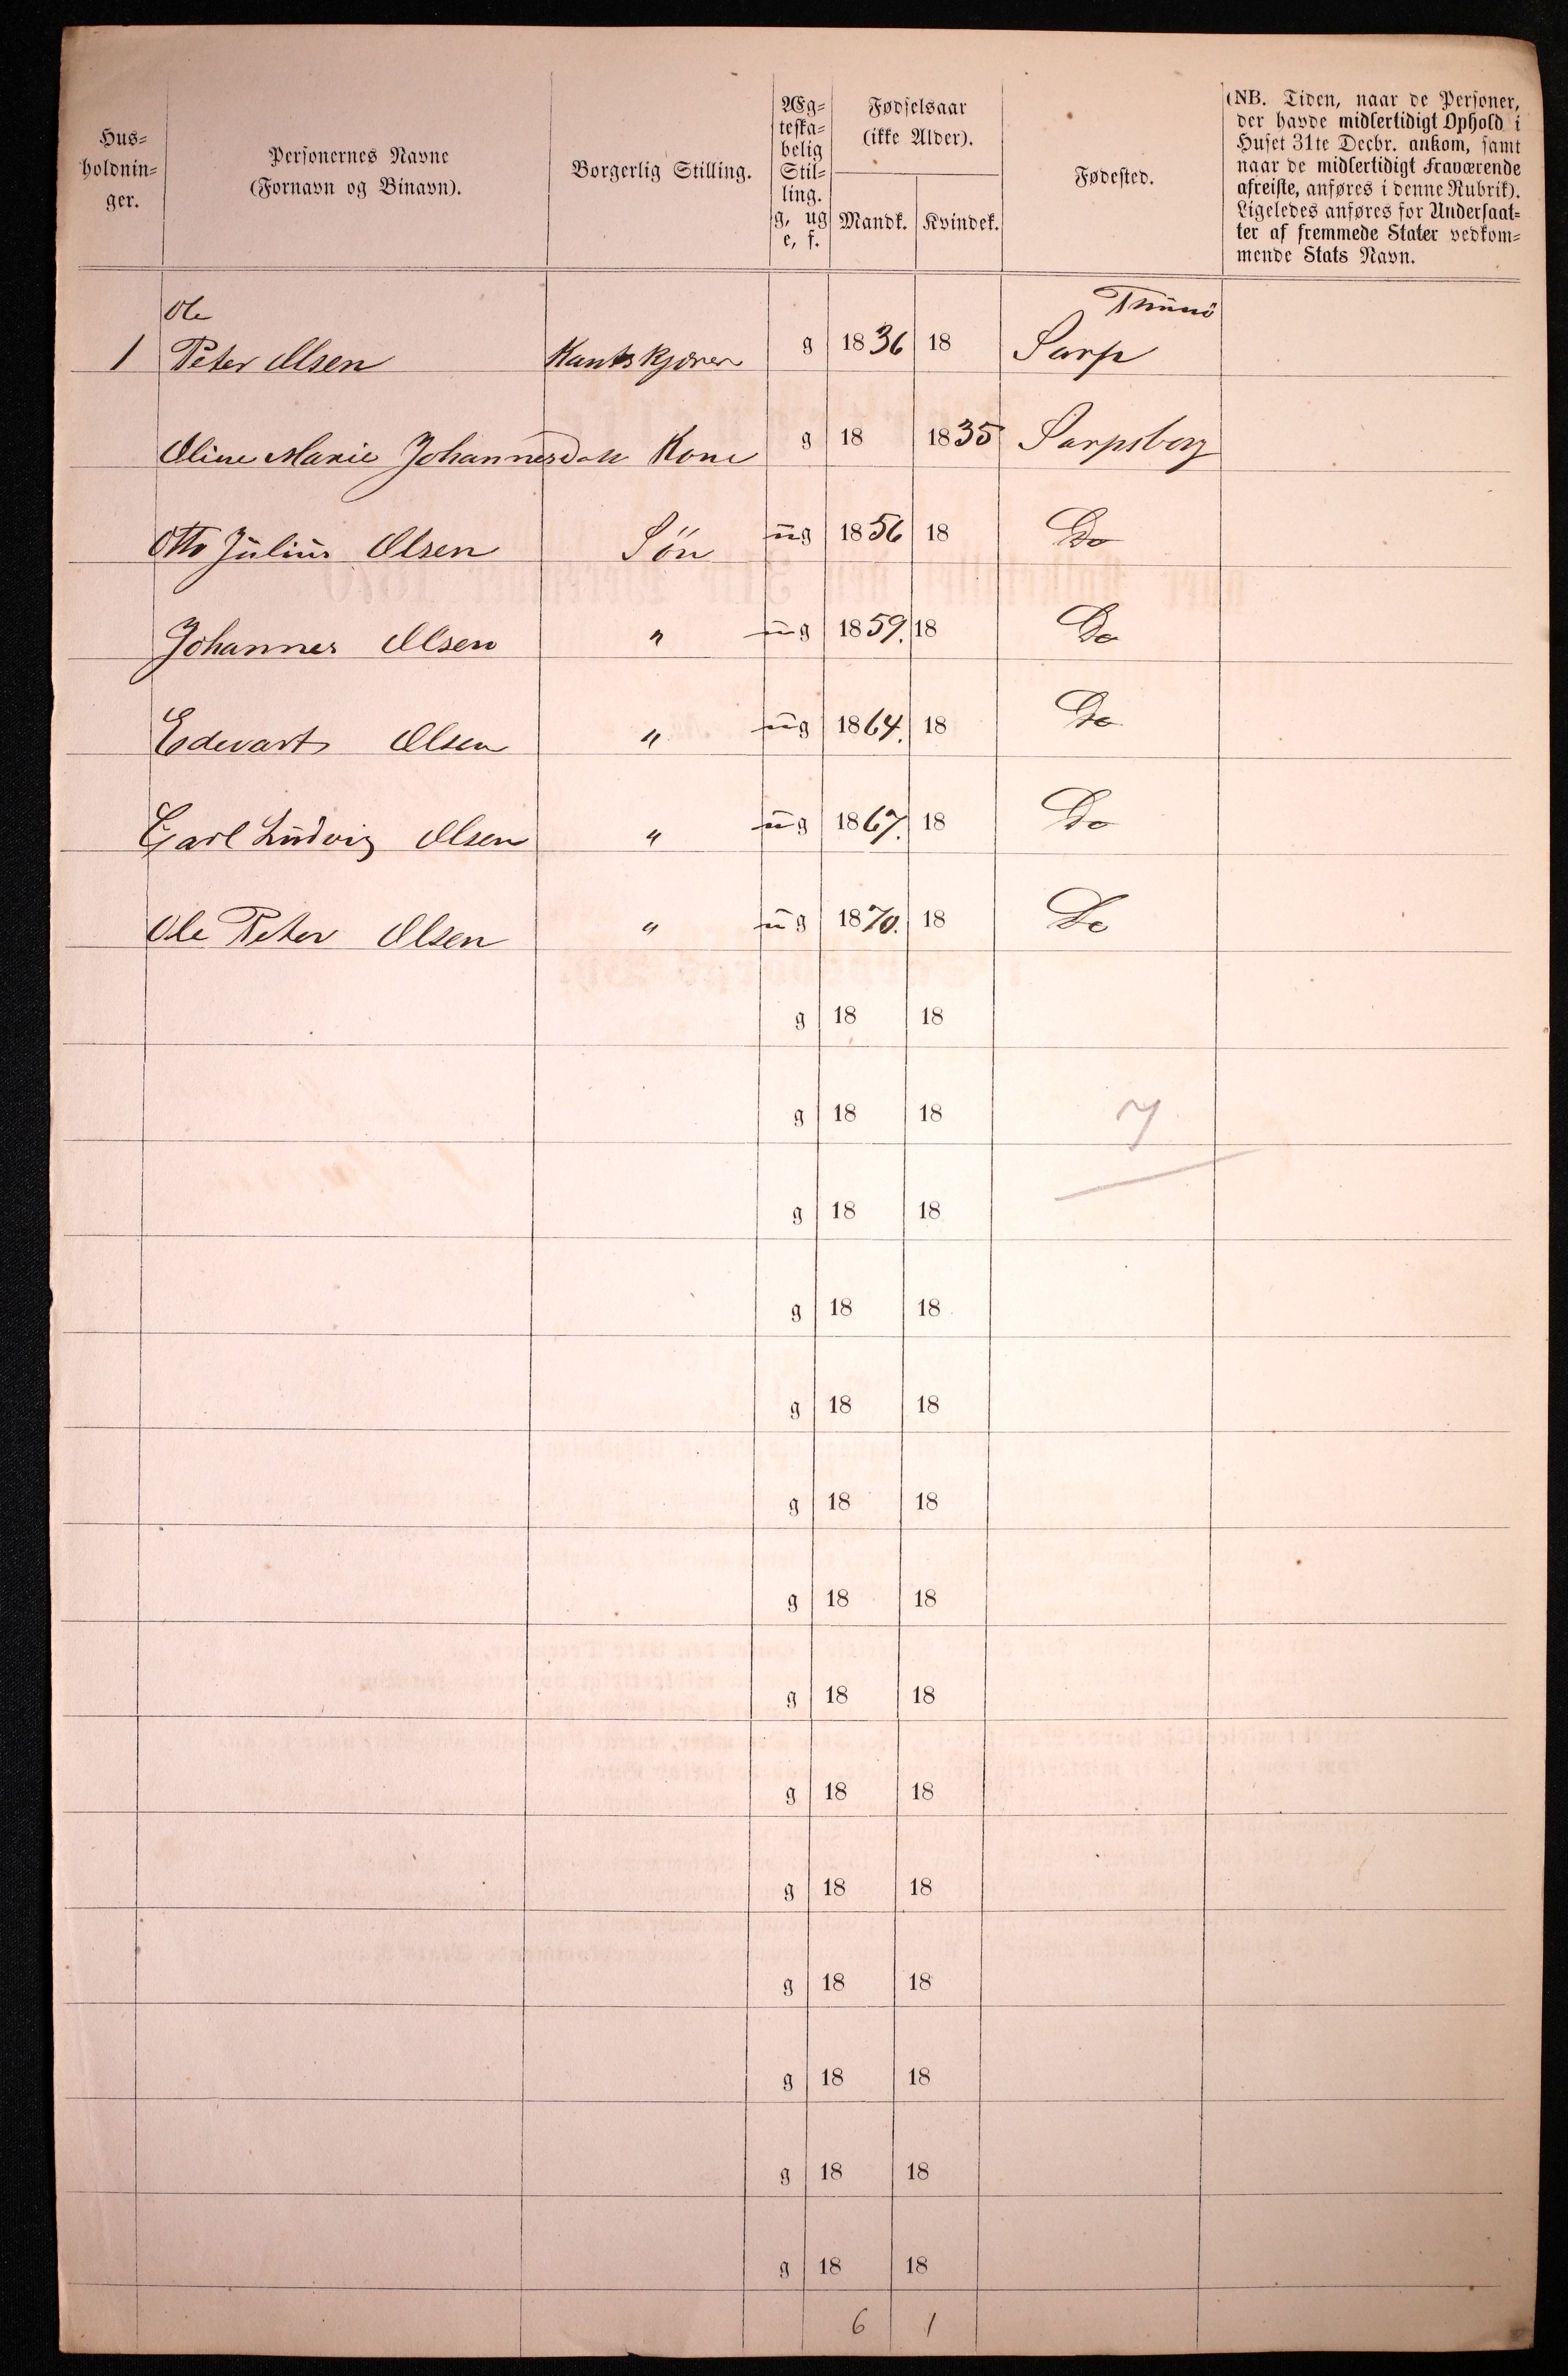 Hus-
holdnin-
ger.
Personernes Navne
(Fornavn og Binavn).
Borgerlig Stilling.
Æg-
teska-
belig
Stil-
ling.
g, ug
e, f.
Fødselsaar
(ikke Alder).
Mandk. Kvindek.
Fødested.
(NB. Tiden, naar de Personer,
der havde midlertidigt Ophold i
Huset 31te Decbr. ankom, samt
naar de midlertidigt Fraværende
afreiste, anføres i denne Rubrik).
Ligeledes anføres for Undersaat-
ter af fremmede Stater vedkom-
mende Stats Navn.
Ole
1 Peter Olsen g 1836 18 Sarp
Oline Marie Johannesdatt Kone g 18 1835 Sarpsborg
Otto Julius Olsen Sön ug 1856 18 Do
Johannes Olsen " ug 1859. 18 Do
Edevart Olsen " ug 1864. 18 Do
Carl Ludvig Olsen " ug 1867. 18 Do
Ole Peter Olsen " ug 1870. 18 Do
g 18 18
g 18 18 7
g 18 18
g 18 18
g 18 18
g 18 18
g 18 18
g 18 18
g 18 18
g 18 18
g 18 18
g 18 18
g 18 18
g 18 18
6 1